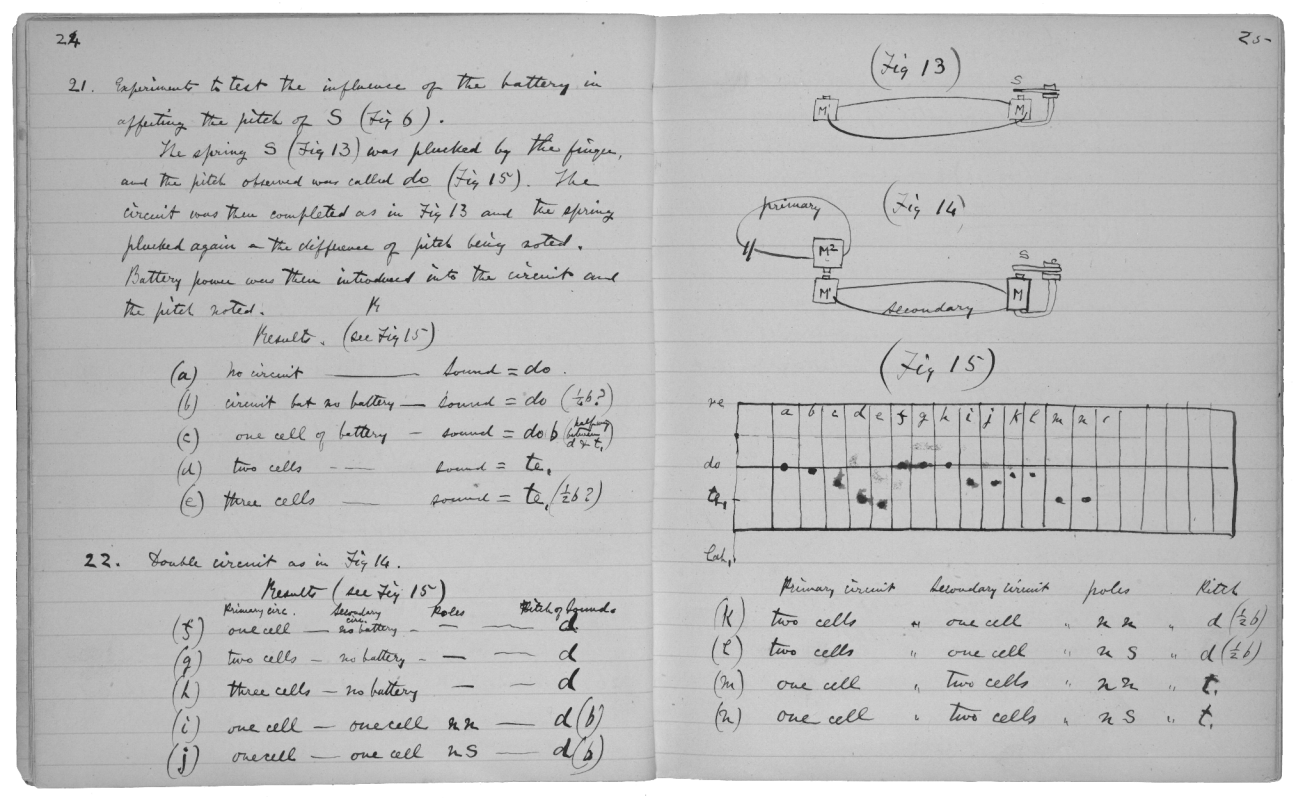 24
21. Experiments to test the influence of the battery in
affecting the pitch of S (Fig 6).
The spring S (Fig 13) was plucked by the finger,
and the pitch observed was called do (Fig 15). The
circuit was then completed as in Fig 13 and the spring
plucked again – the difference of pitch being noted.
Battery power was then introduced into the circuit and
the pitch noted.
Results. (see Fig 15)
(a) no circuit —— Sound = do.
(b) circuit but no battery — sound = do (¼b?)
(c) one cell of battery – sound = do b (halfway between d & t,)
(d) two cells —— sound = te,
(e) three cells —— sound = te, (½b?)
22. Double circuit as in Fig 14.
Results (see Fig 15)
Primary circ. Secondary circ. Poles Pitch of Sounds
(f) one cell — no battery – — — d
(g) two cells – no battery – — — d
(h) three cells – no battery — — d
(i) one cell — one cell nn — d(b)
(j) one cell — one cell nS — d(b)
25
(Fig 13)
S
M' M
(Fig 14)
primary
M²
S
M' M
secondary
(Fig 15)
re a b c d e f g h i j k l m n
do
te,
Lah,
Primary circuit Secondary circuit poles Pitch
(k) two cells " one cell " nn " d(½b)
(l) two cells " one cell " nS " d(½b)
(m) one cell " two cells " nn " t,
(n) one cell " two cells " nS " t,